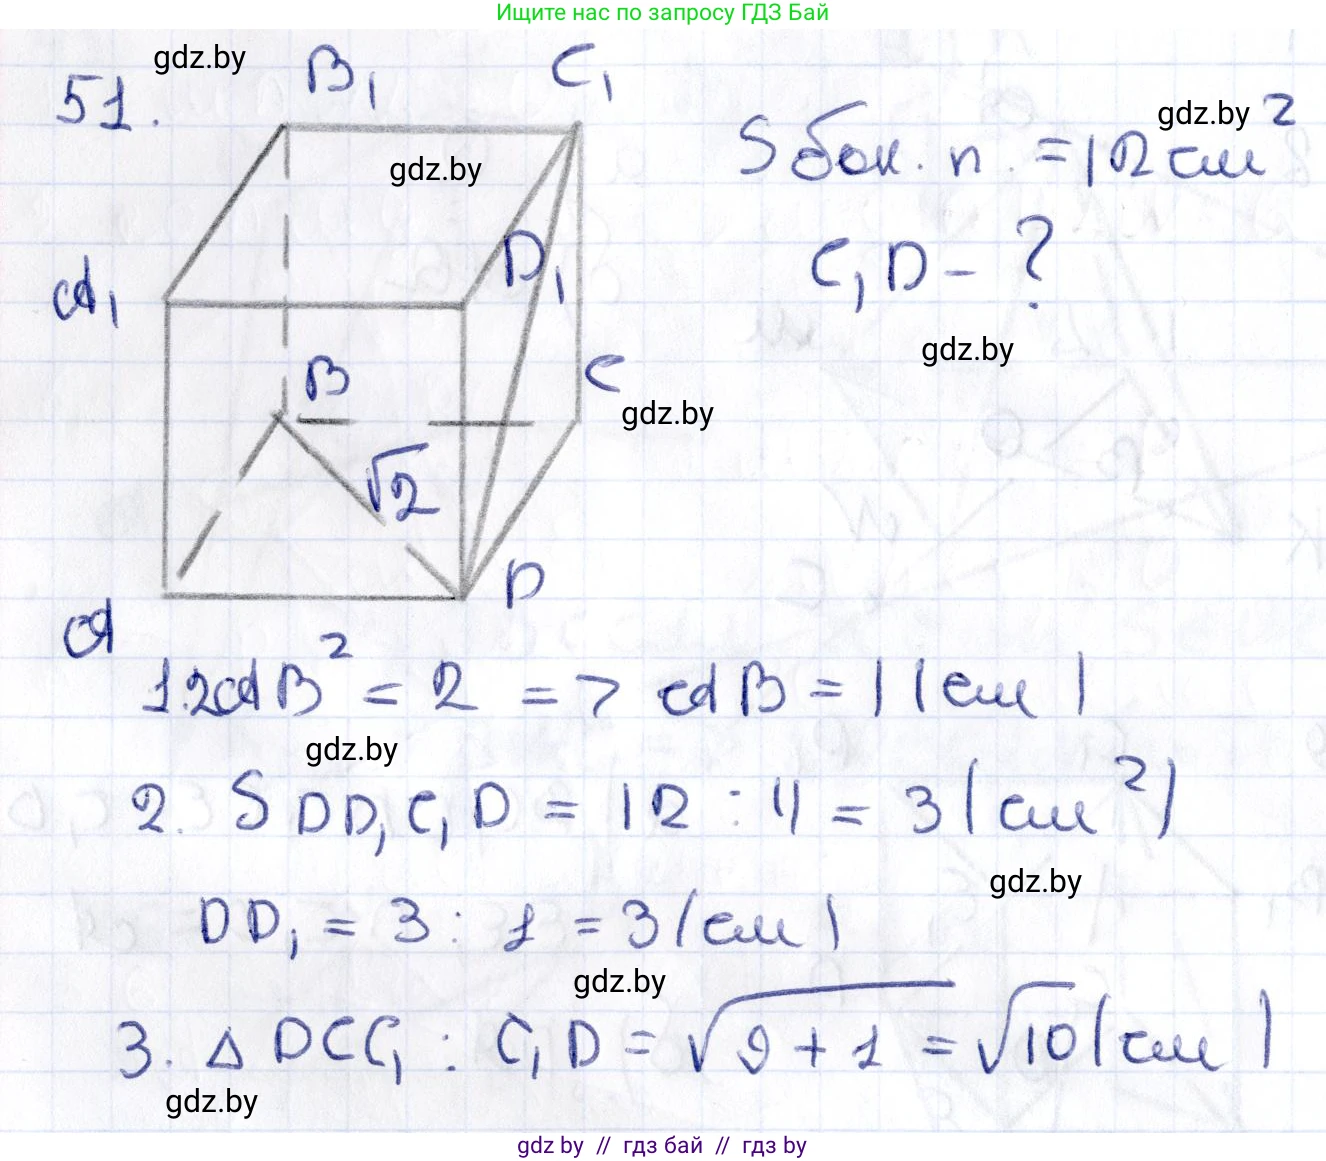 Ищите нас по запросу ГДЗ Бай
gdz.by
51.
B₁
C₁
gdz.by
Sбок. п. = 12 см²
gdz.by
A₁
D₁
C₁D - ?
gdz.by
B
C
gdz.by
√2
D
A
1. 2AB² = 2 => AB = 1 (см)
gdz.by
2. S DD₁C₁D = 12 : 4 = 3 (см²)
gdz.by
DD₁ = 3 : 1 = 3 (см)
gdz.by
3. Δ DCC₁ : C₁D = √9 + 1 = √10 (см)
gdz.by
gdz by // гдз бай // gdz by